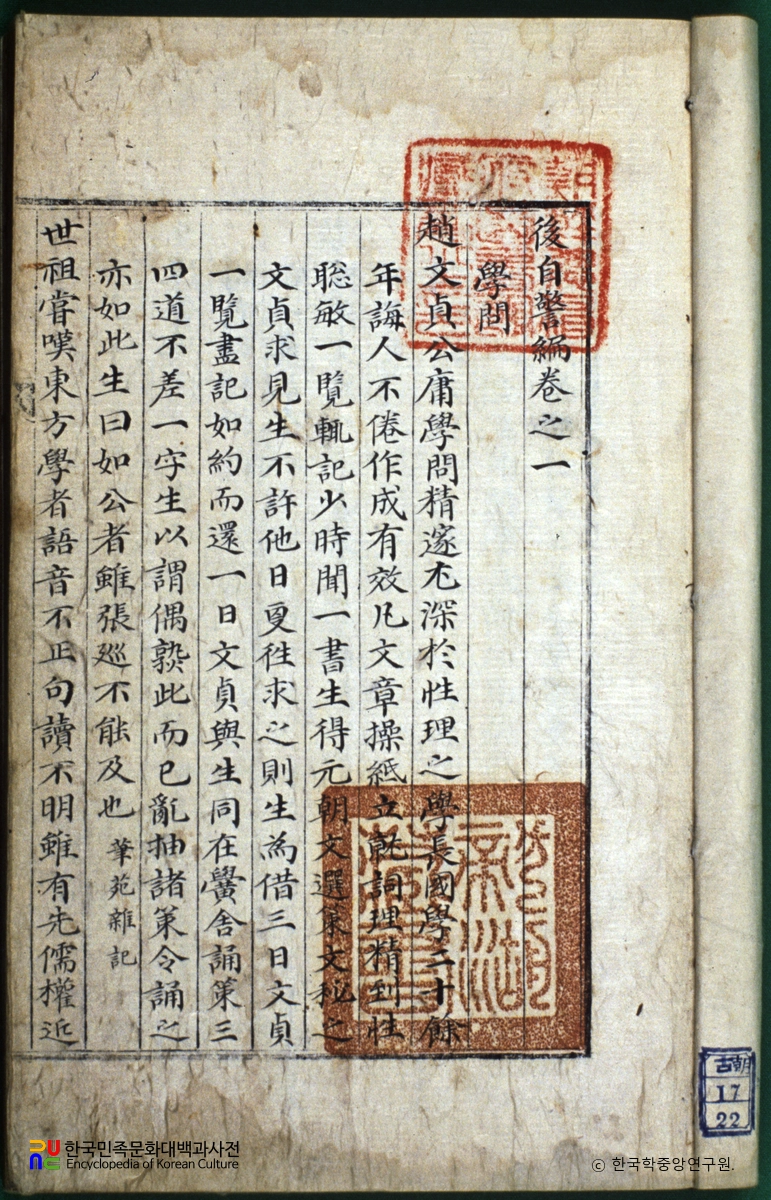 後自警編卷之一
學問
趙文貞公庸學問精邃尤深於性理之學長國學二十餘
年誨人不倦作成有效凡文章操紙立就詞理精到性
聡敏一覧輒記少時聞一書生得元朝文選集文秘之
文貞求見生不許他日更徃求之則生為借三日文貞
一覧盡記如約而還一日文貞與生同在黌舍誦第三
四道不差一字生以謂偶熟此而已亂抽諸第令誦之
亦如此生曰如公者雖張巡不能及也 筆苑雜記
世祖嘗嘆東方學者語音不正句讀不明雖有先儒權近
朝
古
17
22
한국민족문화대백과사전
Encyclopedia of Korean Culture
© 한국학중앙연구원.